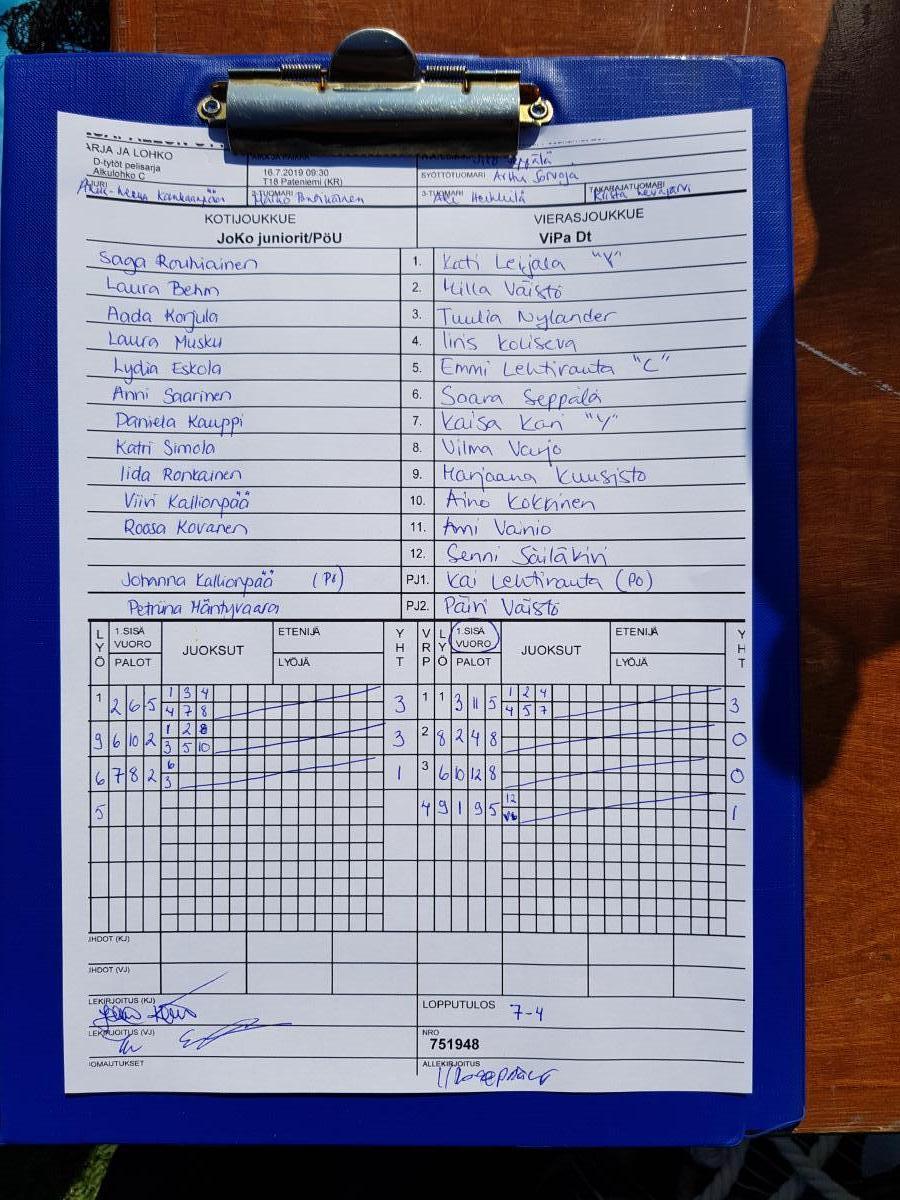 ARJA JA LOHKO
D-tytöt pelisarja
Alkulohko C
16.7.2019 09:30
T18 Pateniemi (KR)
Seppälä
SYÖTTÖTUOMARI Arttu Sorvoja
2-TUOMARI
3-TUOMARI Heikkilä
TAKARAJATUOMARI
KOTIJOUKKUE VIERASJOUKKUE
JoKo juniorit/PöU ViPa Dt
Saga Rouhiainen 1. Kati Leijala "V"
Laura Behm 2. Milla Väistö
Aada Korjula 3. Tuulia Nylander
Laura Musku 4. Iiris Koliseva
Lydia Eskola 5. Emmi Lehtirauta "C"
Anni Saarinen 6. Saara Seppälä
Daniela Kauppi 7. Kaisa Kari "V"
Katri Simola 8. Vilma Varjo
Iida Ronkainen 9. Marjaana Kuusisto
Viivi Kallionpää 10. Aino Kokkinen
Roosa Kovanen 11. Anni Vainio
12. Senni Säiläkivi
Johanna Kallionpää (PO) PJ1. Kai Lehtirauta (PO)
Petriina Mäntyvaara PJ2. Päivi Väistö
LYÖ 1.SISÄ VUORO PALOT JUOKSUT ETENIJÄ LYÖJÄ YHT VRP LYÖ 1.SISÄ VUORO PALOT JUOKSUT ETENIJÄ LYÖJÄ YHT
1 3 4 1 2 4
1 2 6 5 3 1 1 3 11 5 3
4 7 8 4 5 7
1 2 8
9 6 10 2 3 2 8 2 4 8 0
3 5 10
6
6 7 8 2 1 3 6 10 12 8 0
3
12
5 4 9 1 9 5 1
HDOT (KJ)
HDOT (VJ)
LEKIRJOITUS (KJ) LOPPUTULOS 7-4
LEKIRJOITUS (VJ) NRO
751948
OMAUTUKSET ALLEKIRJOITUS